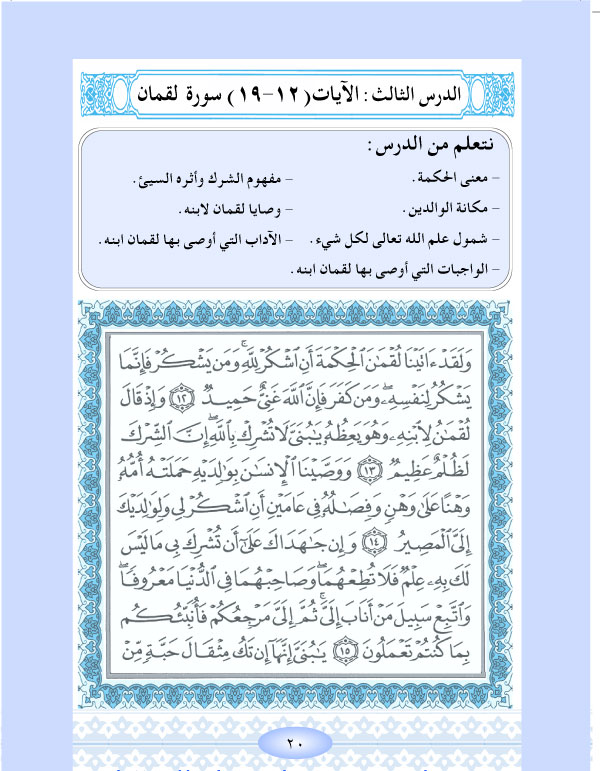 الدرس الثالث : الآيات (١٢-١٩) سورة لقمان
نتعلم من الدرس :
- معنى الحكمة. - مفهوم الشرك وأثره السيئ.
- مكانة الوالدين. - وصايا لقمان لابنه.
- شمول علم الله تعالى لكل شيء. - الآداب التي أوصى بها لقمان ابنه.
- الواجبات التي أوصى بها لقمان ابنه.
وَلَقَدْ ءَاتَيْنَا لُقْمَٰنَ ٱلْحِكْمَةَ أَنِ ٱشْكُرْ لِلَّهِ ۚ وَمَن يَشْكُرْ فَإِنَّمَا
يَشْكُرُ لِنَفْسِهِۦ ۖ وَمَن كَفَرَ فَإِنَّ ٱللَّهَ غَنِىٌّ حَمِيدٌ ١٢ وَإِذْ قَالَ
لُقْمَٰنُ لِٱبْنِهِۦ وَهُوَ يَعِظُهُۥ يَٰبُنَىَّ لَا تُشْرِكْ بِٱللَّهِ ۖ إِنَّ ٱلشِّرْكَ
لَظُلْمٌ عَظِيمٌ ١٣ وَوَصَّيْنَا ٱلْإِنسَٰنَ بِوَٰلِدَيْهِ حَمَلَتْهُ أُمُّهُۥ
وَهْنًا عَلَىٰ وَهْنٍ وَفِصَٰلُهُۥ فِى عَامَيْنِ أَنِ ٱشْكُرْ لِى وَلِوَٰلِدَيْكَ
إِلَىَّ ٱلْمَصِيرُ ١٤ وَإِن جَٰهَدَاكَ عَلَىٰٓ أَن تُشْرِكَ بِى مَا لَيْسَ
لَكَ بِهِۦ عِلْمٌ فَلَا تُطِعْهُمَا ۖ وَصَاحِبْهُمَا فِى ٱلدُّنْيَا مَعْرُوفًا ۖ
وَٱتَّبِعْ سَبِيلَ مَنْ أَنَابَ إِلَىَّ ۚ ثُمَّ إِلَىَّ مَرْجِعُكُمْ فَأُنَبِّئُكُم
بِمَا كُنتُمْ تَعْمَلُونَ ١٥ يَٰبُنَىَّ إِنَّهَآ إِن تَكُ مِثْقَالَ حَبَّةٍ مِّنْ
٢٠